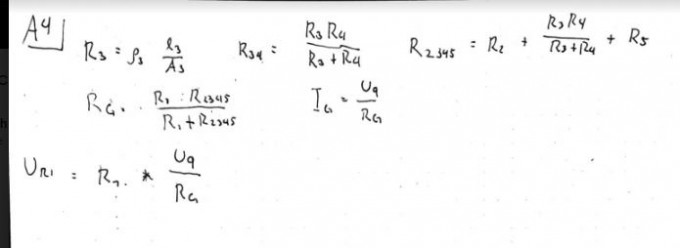 A4
R₃ = ρ₃ l₃/A₃   R₃₄ = R₃R₄/(R₃+R₄)   R₂₃₄₅ = R₂ + R₃R₄/(R₃+R₄) + R₅
R_G = R₁ · R₂₃₄₅/(R₁+R₂₃₄₅)   I_G = U_q/R_G
U_R1 = R₁ * U_q/R_G